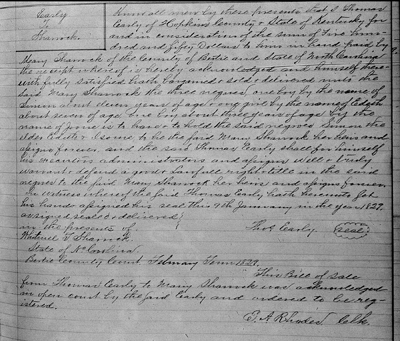 Early
to
Sharrock
Know all men by these presents that I Thomas
Early of Hopkins County & State of Kentucky for
and in consideration of the sum of Five hun-
dred and fifty Dollars to him in hand paid by
Mary Sharrock of the County of Bertie and State of North Carolina
the receipt whereof is hereby acknowledged and himself there-
with fully satisfied hath bargained sold & delivered unto the
said Mary Sharrock the three negroes one boy by the name of
Simon about eleven years of age one girl by the name of Edith
about seven of age one boy about three years of age by the
name of to have & to hold the said negroes Simon the
elder Edith & to the said Mary Sharrock her heirs and
assigns forever, and the said Thomas Early shall for himself
his executors administrators and assigns will & truly
warrant & defend a good & lawful right & title in the said
negroes to the said Mary Sharrock her heirs and assigns forever.
In witness whereof the said Thomas Early hath hereunto set
his hand & affixed his seal this 9th January in the year 1827.
assigned sealed & delivered
in the presents of Thos Early (seal)
Sharrock
State of No Carolina
Bertie County Court February Term 1827.
This Bill of Sale
from Thomas Early to Mary Sharrock was acknowledged
in open court by the said Early and ordered to be reg-
istered.
Clk.